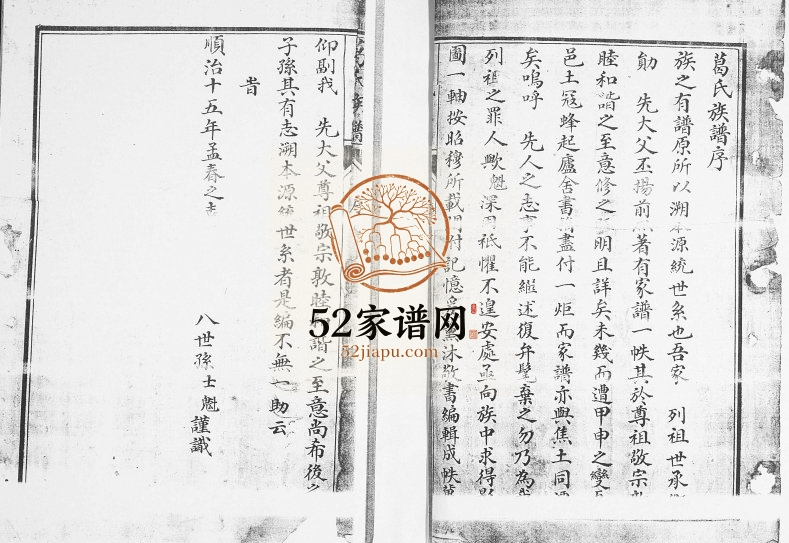 葛氏族譜序
族之有譜原所以溯源統世系也吾家 列祖世承
勛 先大父丕揚前 著有家譜一帙其於尊祖敬宗
睦和諧之至意修之 明且詳矣未幾而遭甲申之變
邑土寇蜂起廬舍書 盡付一炬而家譜亦與焦土同
矣嗚呼 先人之志 不能繼述復弁髦棄之勿乃為
列祖之罪人歟魁深 祗懼不遑安處亟向族中求得
圖一軸按昭穆所載 付記憶 沐敬書編輯成帙
仰副我 先大父尊祖敬宗敦睦 諧之至意尚希後
子孫其有志溯本源統世系者是編不無一助云
旹
順治十五年孟春之
八世孫士魁謹識
族譜
52家谱网
52jiapu.com